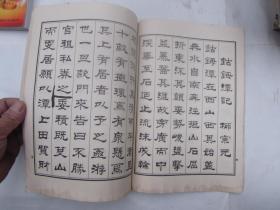 鈷鉧潭記 柳宗元
鈷鉧潭在西山西其始蓋
冉水自南奔注抵山石屈
折東流其顛委勢峻盪擊
益暴齧其涯故旁廣而中
深畢至石乃止流沫成輪
十畝有樹環焉有泉懸焉
其上有居者以予之亟游
也一旦款門來告曰不勝
官租私券之委積既芟山
而更居願以潭上田貿財